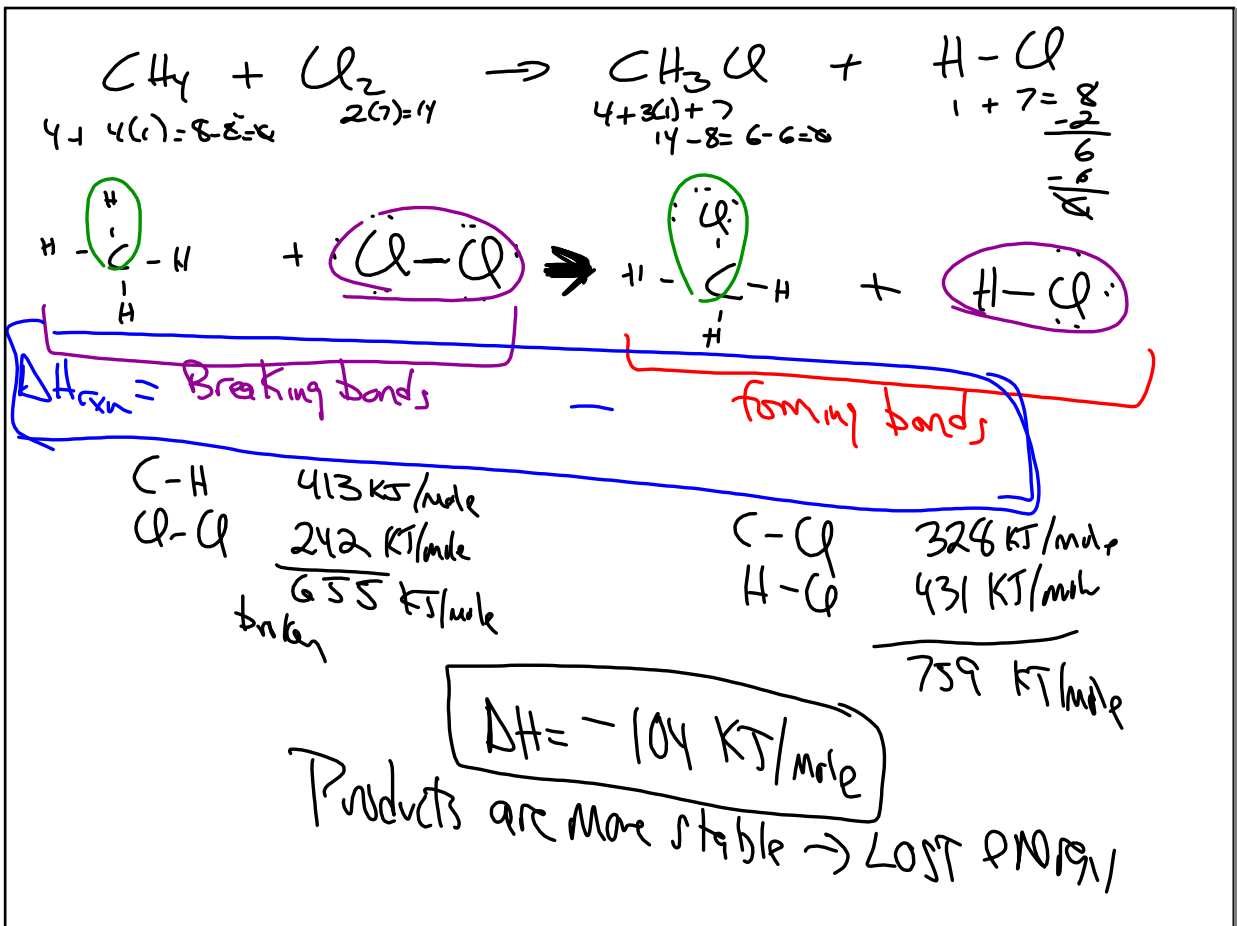 CH4 + Cl2 → CH3Cl + H-Cl
4+ 4(1)=8-8=0 2(7)=14 4+3(1)+7 1 + 7=8
14-8=6-6=0 -2
6
-6
0
H Cl
H - C - H + Cl-Cl → H - C - H + H-Cl
H H
ΔHrxn = Breaking bonds - forming bonds
C-H 413 KJ/mole
Cl-Cl 242 KJ/mole C-Cl 328 KJ/mole
655 KJ/mole H-Cl 431 KJ/mole
broken
759 KJ/mole
ΔH= -104 KJ/mole
Products are more stable → LOST energy